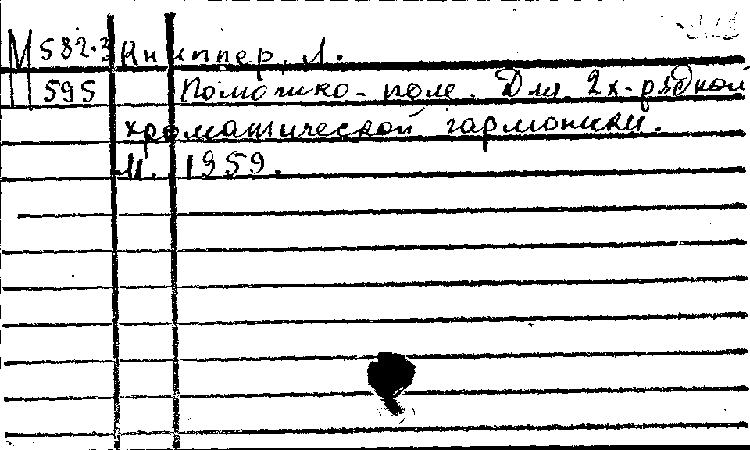 М 582.3 Книппер, Л.
595 Полюшко-поле. Для 2х-рядной
хроматической гармоники.
М. 1959.